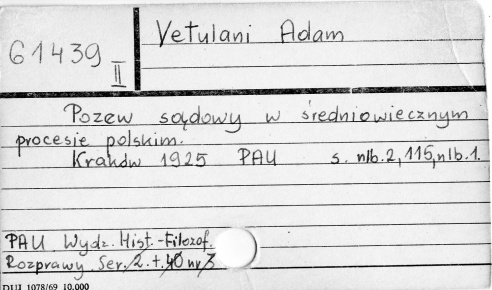 61439
II
Vetulani Adam
Pozew sądowy w średniowiecznym
procesie polskim.
Kraków 1925 PAU s. nlb. 2, 115, nlb. 1.
PAU Wydz. Hist.-Filozof.
Rozprawy Ser. 2. t. 40 nr 3
DUJ 1078/69 10.000